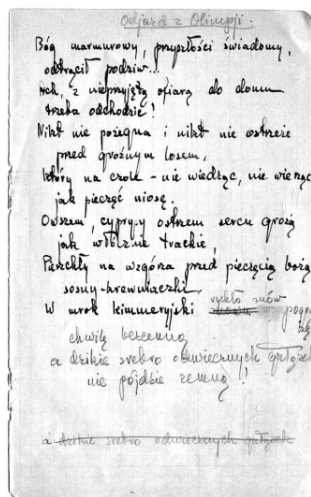 Odjazd z Olimpji.
Bóg marmurowy, przyszłości świadomy,
odtrącił podziw...
Ach, z nieprzyjętą ofiarą do domu
trzeba odchodzić!
Nikt nie pożegna i nikt nie ostrzeże
przed groźnym losem,
który na czole – nie wiedząc, nie wierząc
jak pieczęć niosę.
Owszem, cyprysy ostrzem sercu grożą
jak włócznie trackie,
Pierzchły na wzgórza przed pieczęcią bożą
sosny-krewniaczki.
W mrok kimmeryjski rychło znów
chwilę bezcenną
a dzikie srebro odwiecznych gałązek
nie pójdzie ze mną!
a dzikie srebro odwiecznych gałązek